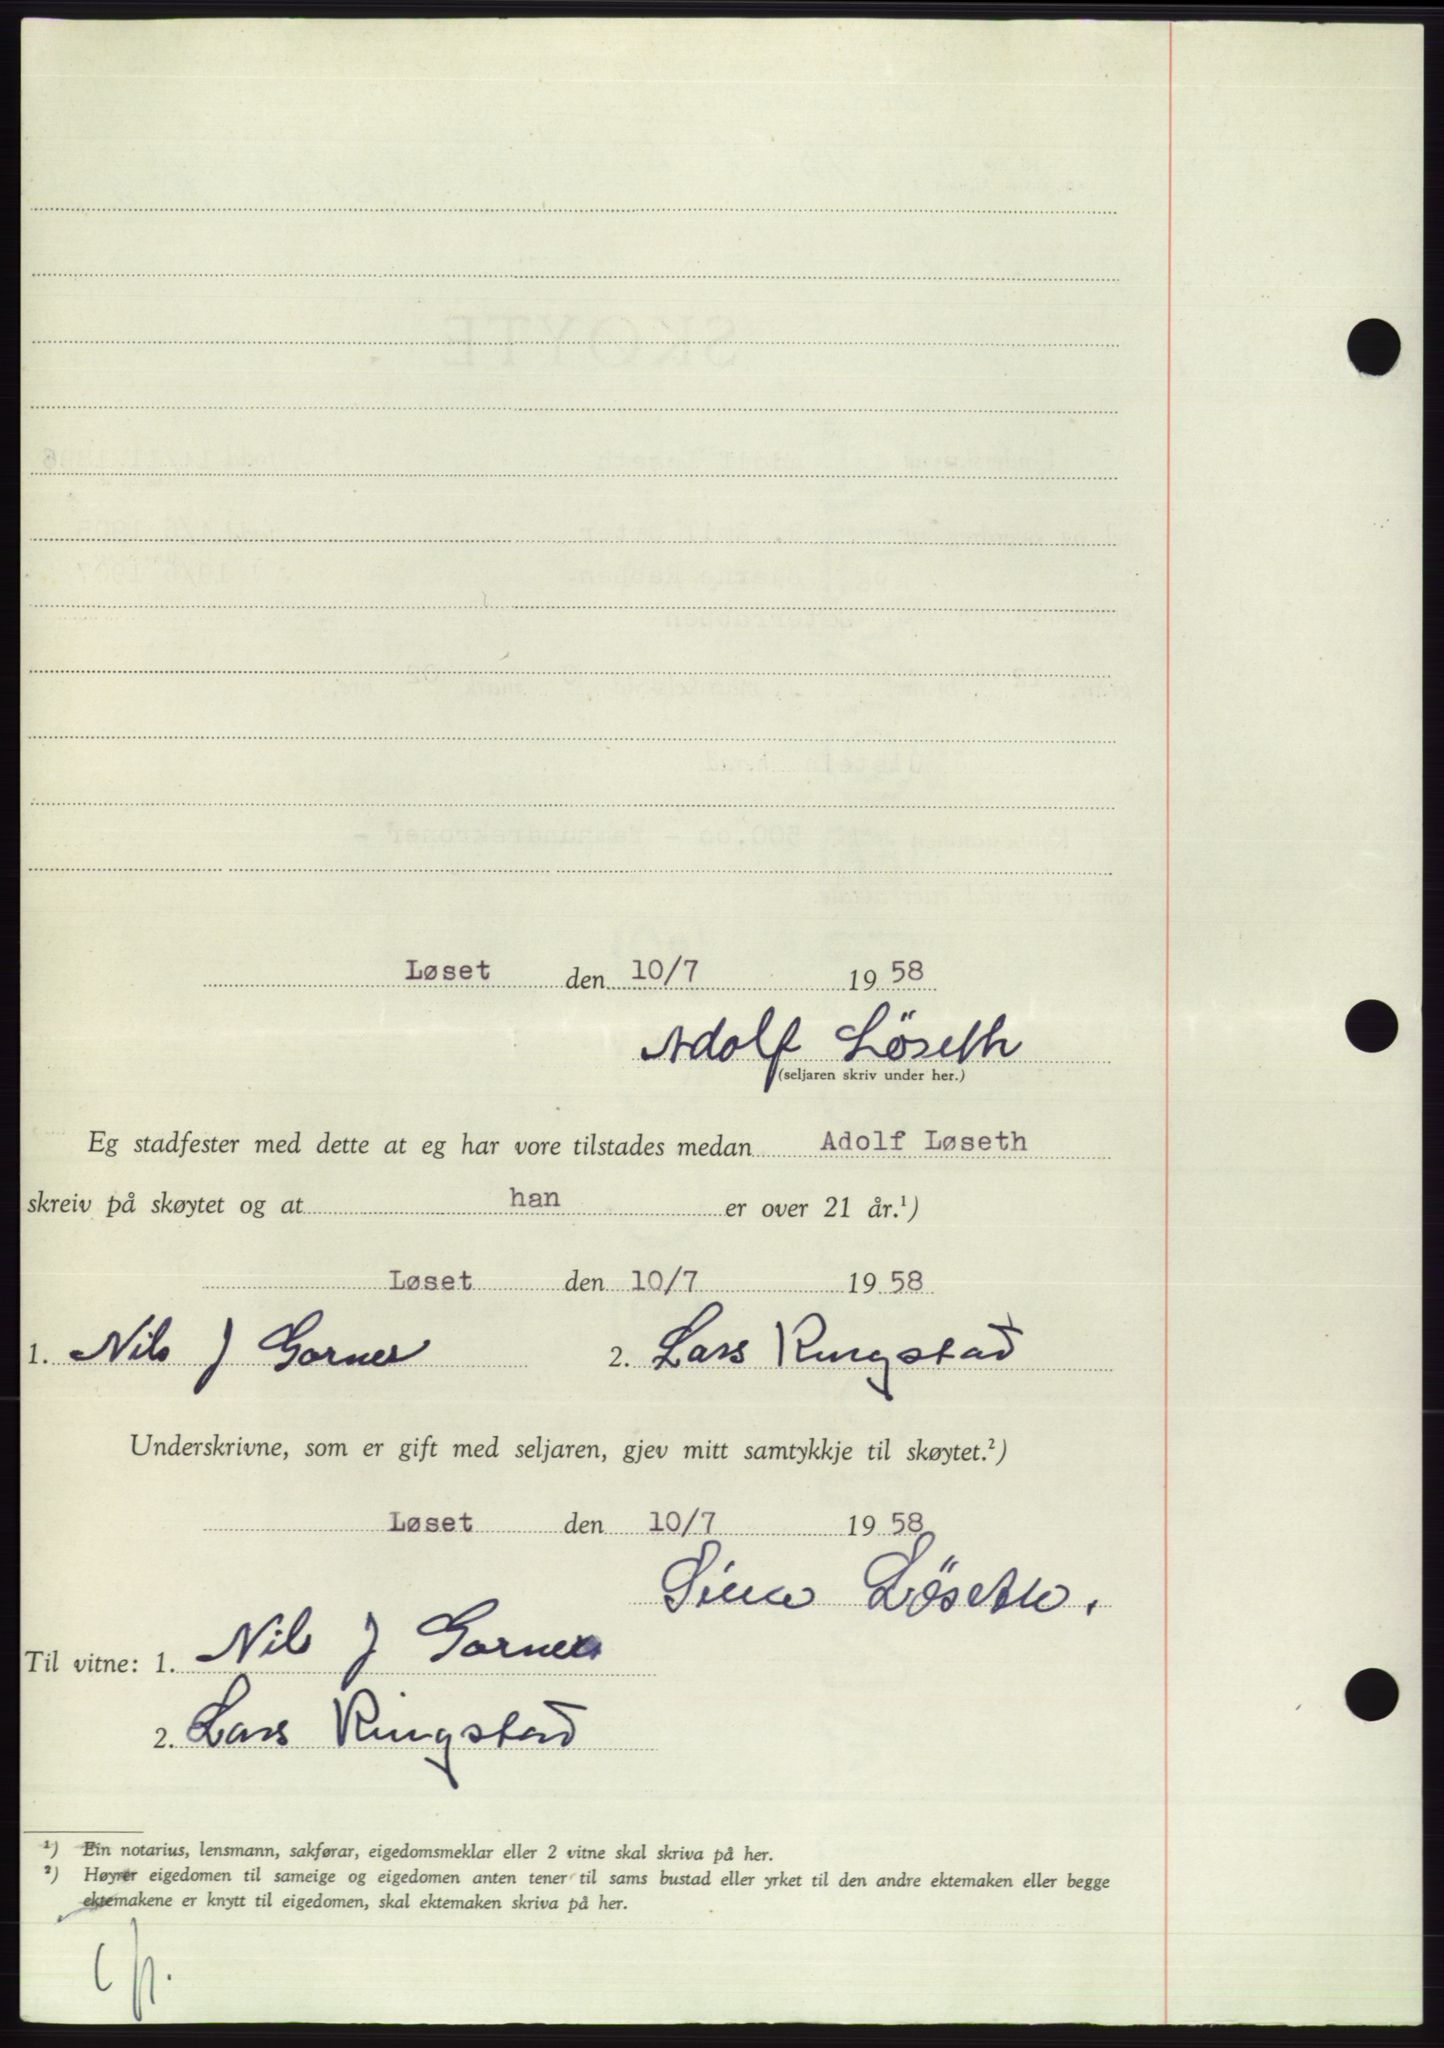 Løset den 10/7 1958
Adolf Löseth
(seljaren skriv under her.)
Eg stadfester med dette at eg har vore tilstades medan Adolf Løseth
skreiv på skøytet og at han er over 21 år.¹)
Løset den 10/7 1958
1. Nils J Garnes 2. Lars Ringstad
Underskrivne, som er gift med seljaren, gjev mitt samtykkje til skøytet.²)
Løset den 10/7 1958
Löseth.
Til vitne: 1. Nils J Garnes
2. Lars Ringstad
¹) Ein notarius, lensmann, sakførar, eigedomsmeklar eller 2 vitne skal skriva på her.
²) Høyrer eigedomen til sameige og eigedomen anten tener til sams bustad eller yrket til den andre ektemaken eller begge
ektemakene er knytt til eigedomen, skal ektemaken skriva på her.